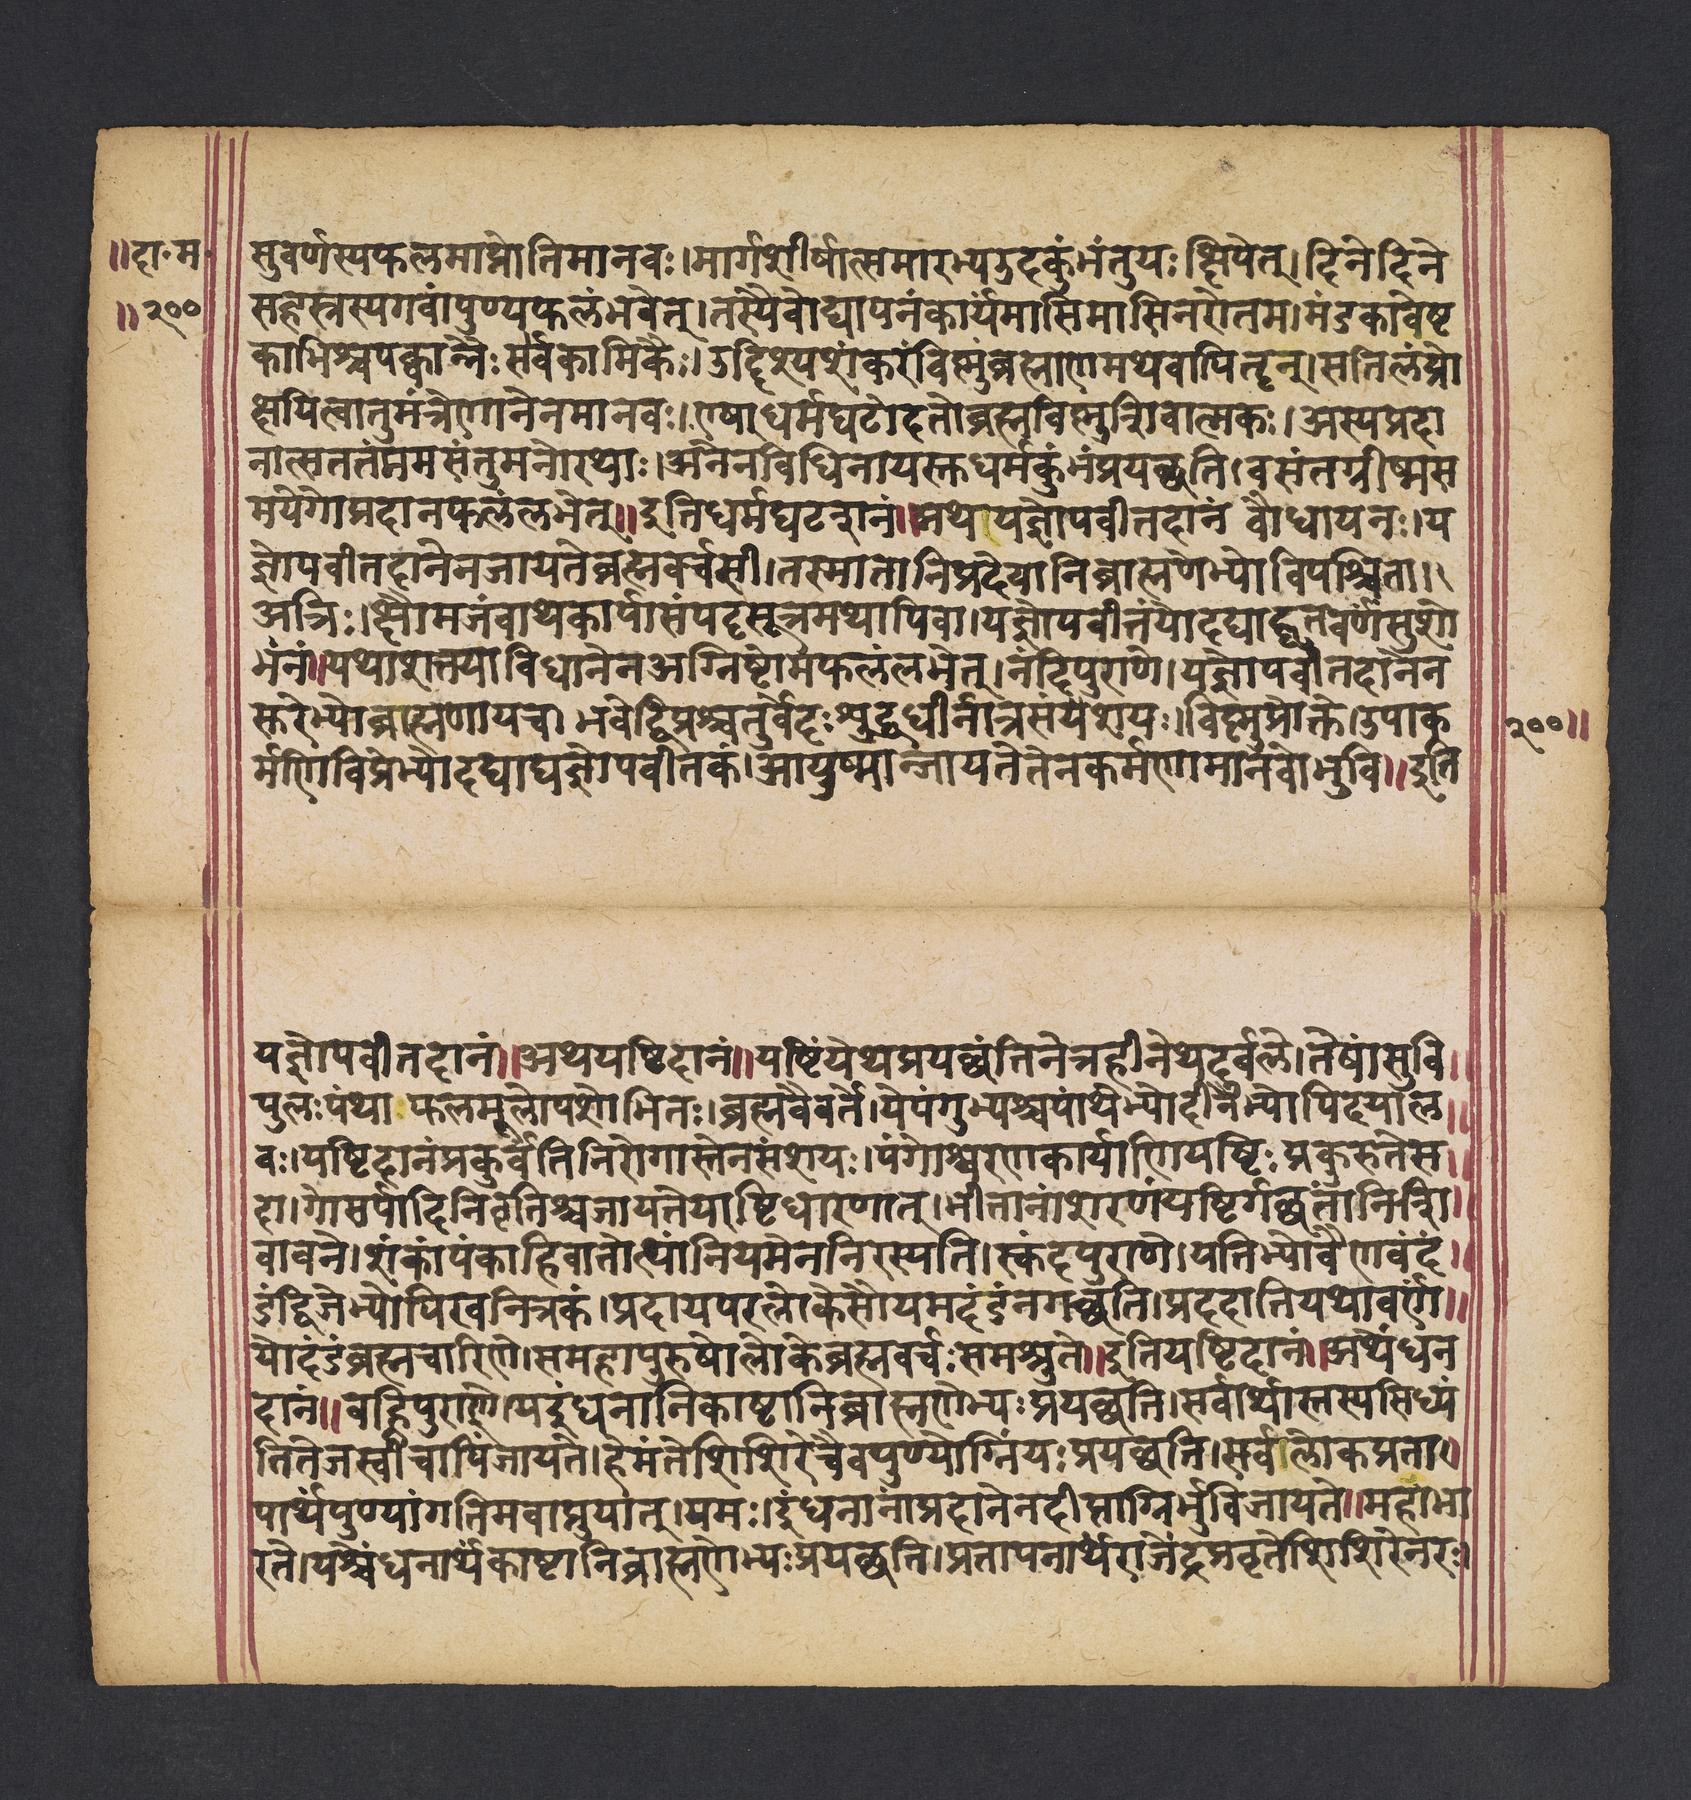 ॥दा॰म॰
॥२००
सुवर्णस्यफलमाप्नोतिमानवः।मार्गशीर्षात्समारभ्यउदकुंभंतुयःक्षिपेत्।दिनेदिने
सहस्रस्यगवांपुण्यफलंभवेत्।तस्यैवोद्यापनंकार्यंमासिमासिनरोतम।मंडकावेष्ट
काभिश्चपक्वान्नैःसर्वकामिकैः।उद्दिश्यशंकरंविष्णुंब्रह्माणमथवापितॄन्।सतिलंप्रो
क्षयित्वातुमंत्रेणानेनमानवः।एषाधर्मघटोदतोब्रह्मविष्णुशिवात्मकः।अस्यप्रदा
नात्सततंममसंतुमनोरथाः।अनेनविधिनायस्तधर्मकुंभंप्रयछति।वसंतग्रीष्मस
मयेगोप्रदानफलंलभेत्॥इतिधर्मघटदानं॥अथयज्ञोपवीतदानं बौधायनः।य
ज्ञोपवीतदानेनजायतेब्रह्मवर्चसी।तस्मातानिप्रदेयानिब्राह्मणेभ्योविपश्चिता।
अत्रिः।क्षौमजंवाथकार्पासंपट्टसूत्रमथापिवा।यज्ञोपवीतंयोदद्याद्धृतवर्णंसुशो
भनं॥यथाशत्तयाविधानेनअग्निष्टोमफलंलभेत्।नंदिपुराणे।यज्ञोपवीतदानेन
सुरेभ्योब्राह्मणायच।भवेद्विप्रश्चतुर्वेदःशुद्धधीर्नात्रसंयशयः।विष्णुप्रोक्ते।उपाक
र्मणिविप्रेभ्योदद्याद्यज्ञोपवीतकं।आयुष्मान्जायतेतेनकर्मणामानवोभुवि॥इति
२००॥
यज्ञोपवीतदानं॥अथयष्टिदानं॥यष्टिंयेथप्रयछंतिनेत्रहीनेथदुर्बले।तेषांसुवि॥
पुलःपंथा फलमूलोपशोभितः।ब्रह्मवैवर्ते।येपंगुभ्यश्चपांथेभ्योदीनेभ्योपिदयाल॥
वः।यष्टिदानंप्रकुर्वंतिनिरोगास्तेनसंशयः।पंगोश्चरणकार्याणियष्टिःप्रकुरुतेस॥
दा।गोसर्पादिनिवृतिश्चजायतेयष्टिधारणात्।भीतानांशरणंयष्टिर्गछतांनिशि॥
वावने।शंकांपंकाहिवातोत्थांनियमेननिरस्यति।स्कंदपुराणे।यतिभ्योवैणवंदं॥
डंद्विजेभ्योपिखनित्रकं।प्रदायपरलोकेसौयमदंडंनगछति।प्रददातियथावर्णं॥
योदंडंब्रह्मचारिणे।समहापुरुषोलोकेब्रह्मवर्चःसमश्नुते॥इतियष्टिदानं॥अथेंधन
दानं॥वह्निपुराणे।यइंधनानिकाष्टानिब्राह्मणेभ्यःप्रयछति।सर्वार्थास्तस्यसिध्यं
तितेजस्वीचापिजायते।हेमंतेशिशिरेचैवपुण्योग्निंयःप्रयछति।सर्वलोकप्रता॰
पार्थंपुण्यांगतिमवाप्नुयात्।यमः।इंधनानांप्रदानेनदीप्ताग्निर्भुविजायते॥महाभा
रते।यश्चेंधनार्थंकाष्टानिब्राह्मणेभ्यःप्रयछति।प्रतापनार्थंराजेंद्रप्रवृतेशिशिरेनरः।